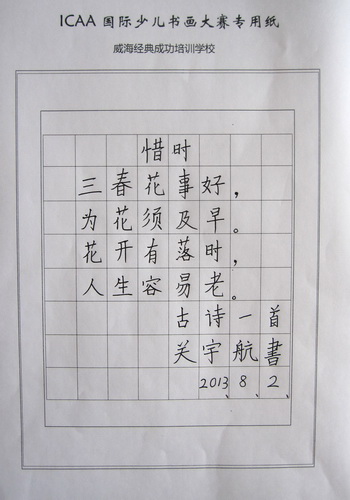 ICAA 国际少儿书画大赛专用纸
威海经典成功培训学校
惜时
三春花事好，
为花须及早。
花开有落时，
人生容易老。
古诗一首
关宇航書
2013、8、2、